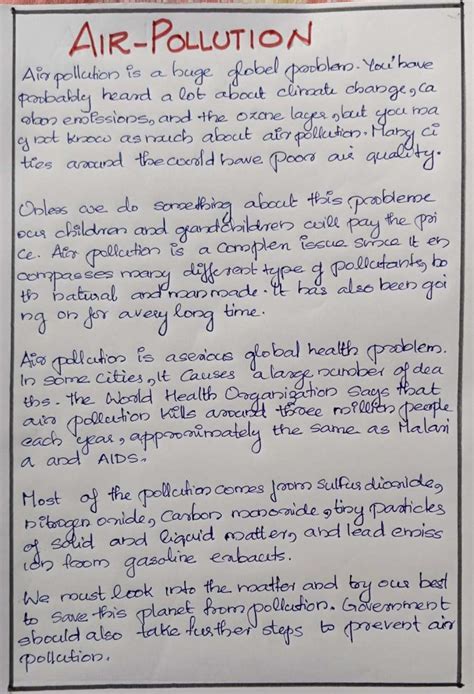 AIR-POLLUTION
Air pollution is a huge globel problem. You'have
probably heard a lot about climate change, ca
rbon emfossions, and the ozone layer, but you ma
y not know as much about air pollution. Many ci
ties around the world have poor air quality.
Unless we do something about this probleme
our children and grandchildren will pay the pri
ce. Air pollution is a complex issue since it en
compasses many different type of pollutants, bo
th natural and manmade. It has also been goi
ng on for a very long time.
Air pollution is a serious global health problem.
In some cities, It causes a large number of dea
ths. The World Health Organization says that
air pollution kills around three million people
each year, approximately the same as Malari
a and AIDS.
Most of the pollution comes from sulfus dioxide,
nitrogen oxide, Carbon monoxide, tiny particles
of solid and liquid matter, and lead emiss
ion from gasoline exhauts.
We must look into the matter and try our best
to save this planet from pollution. Government
should also take further steps to prevent air
pollution.